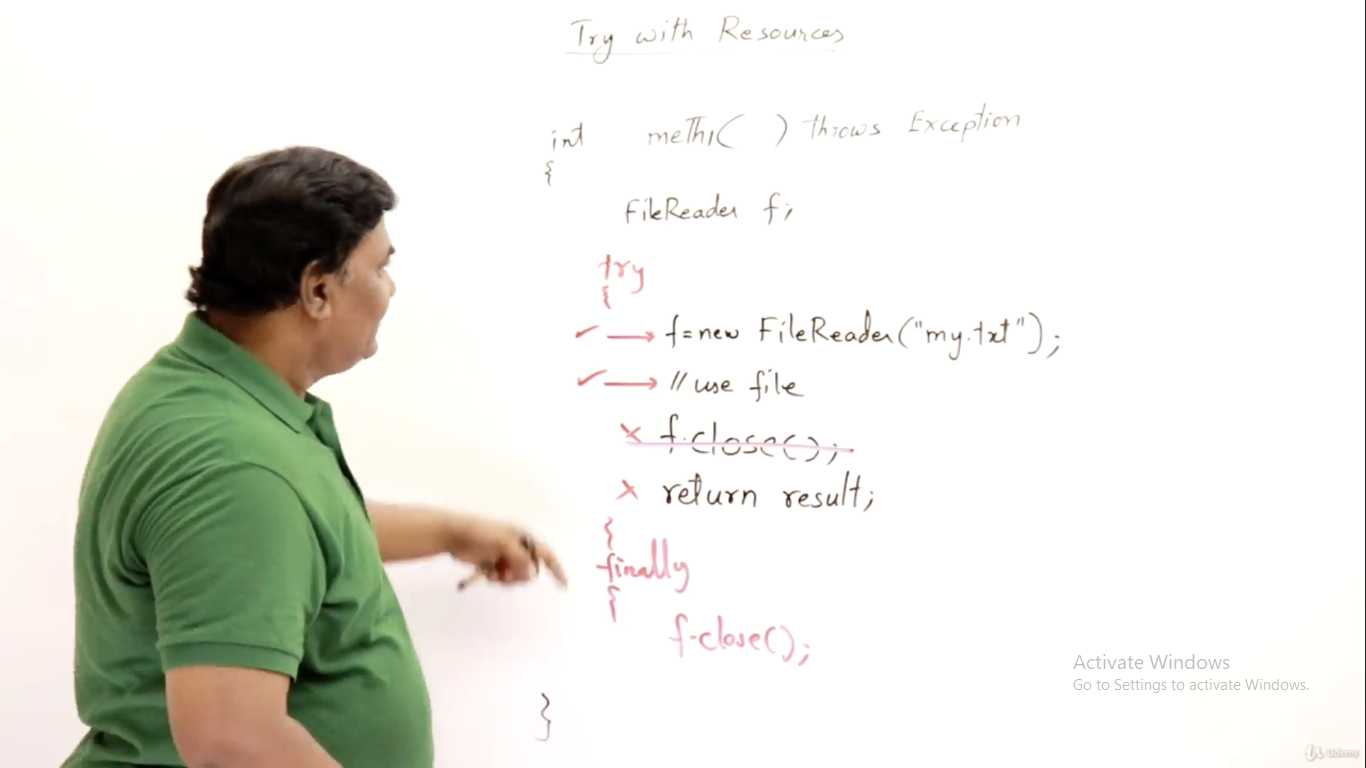 Try with Resources
int meth1( ) throws Exception
{
FileReader f;
try
{
f=new FileReader("my.txt");
// use file
f.close();
return result;
{
finally
{
f.close();
}
Activate Windows
Go to Settings to activate Windows.
Udemy